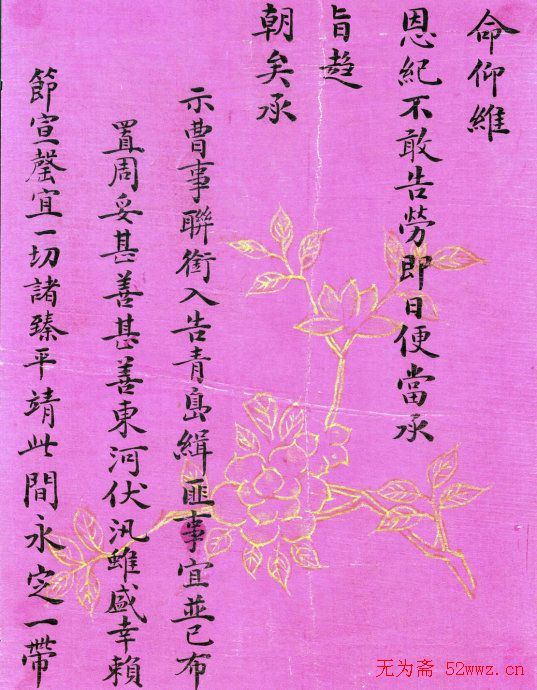 命仰維
恩紀不敢告勞即日便當承
旨趨
朝矣承
示曹事聯銜入告青島緝匪事宜並已布
置周妥甚善甚善東河伏汛雖盛幸賴
節宣罄宜一切諸臻平靖此間永定一帶
无为斋 52wwz.cn